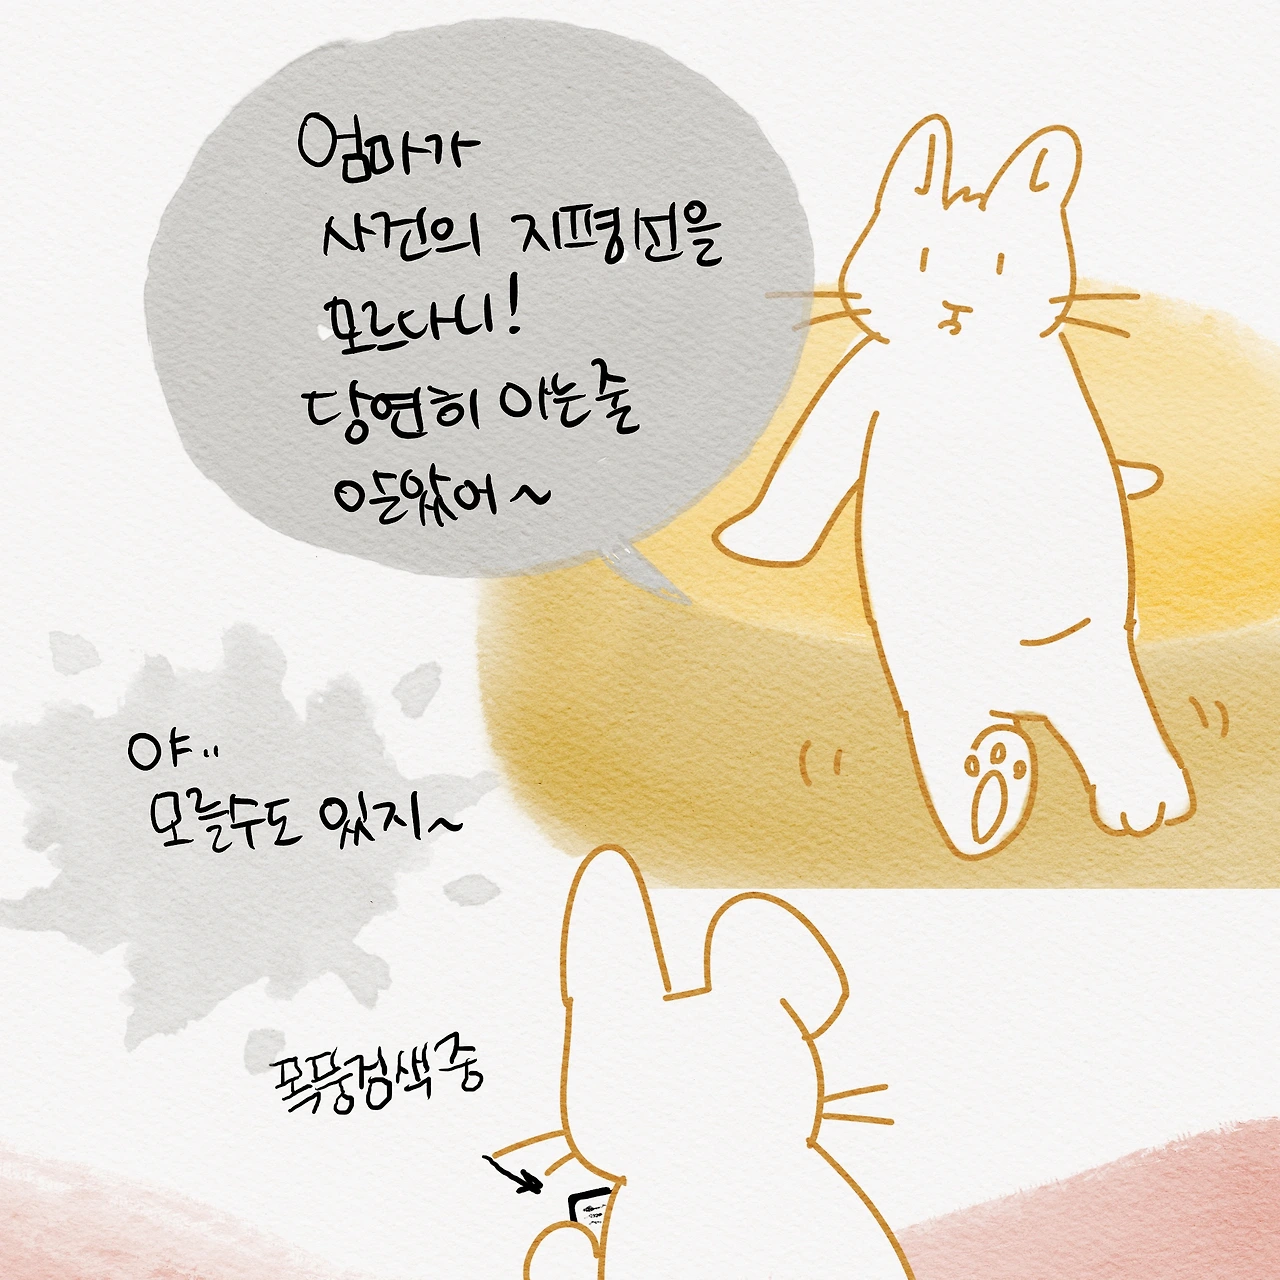 엄마가
사건의 지평선을
모르다니!
당연히 아는줄
알았어~
야..
모를수도 있지~
폭풍검색중